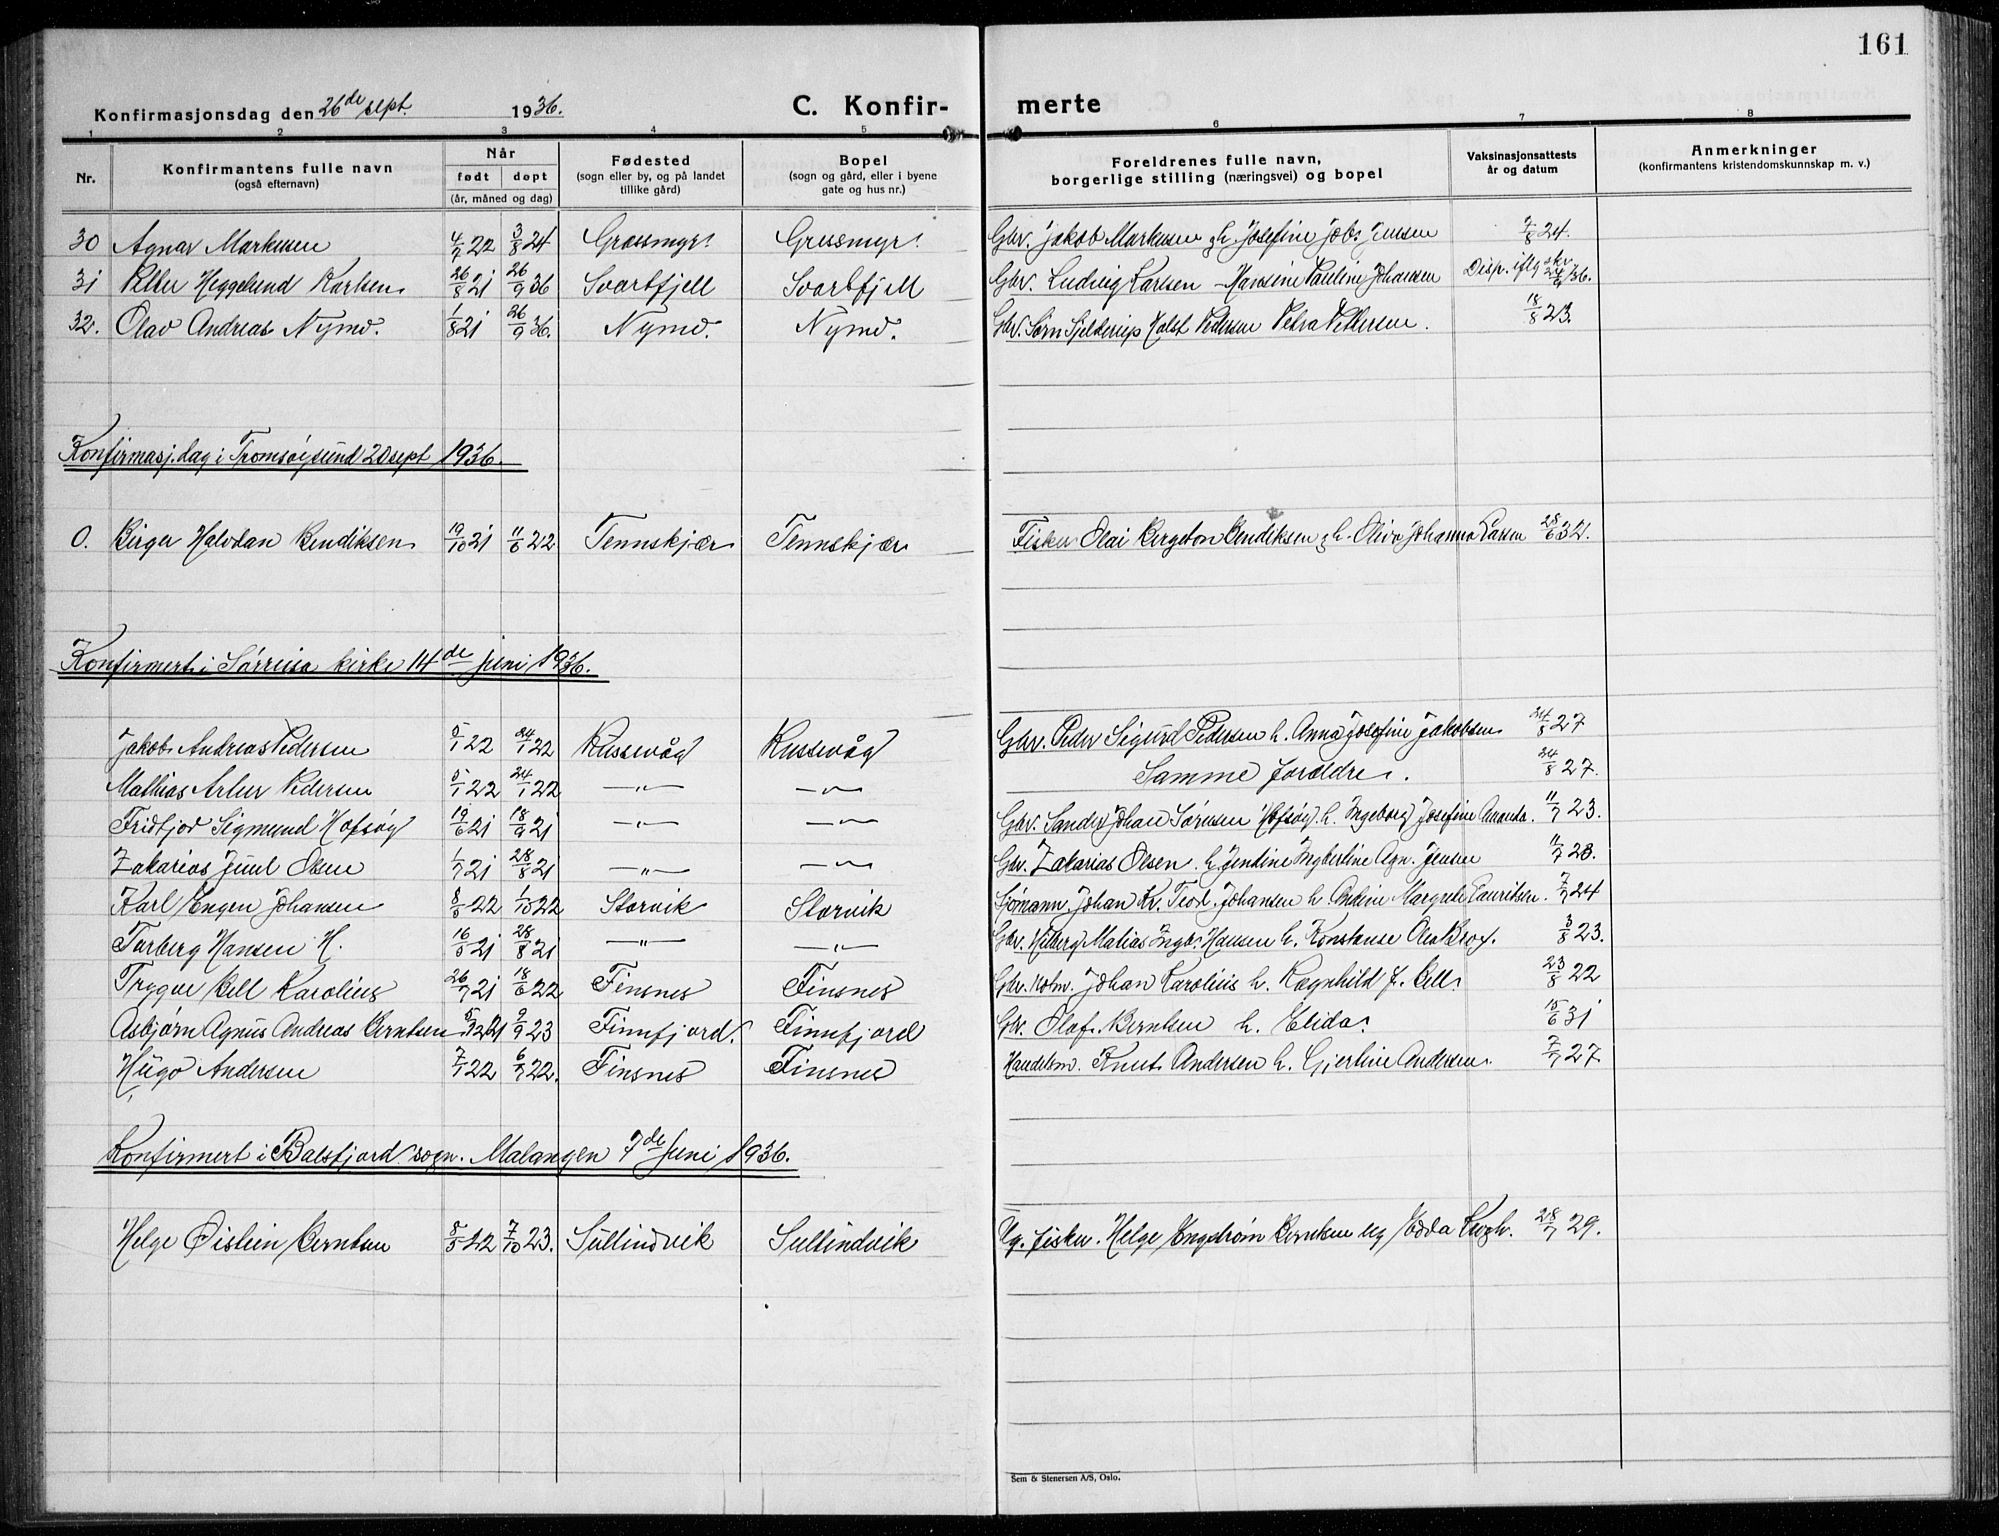 161
Konfirmasjonsdag den 26de sept. 1936. C. Konfir- merte
1 2 3 4 5 6 7 8
Nr. Konfirmantens fulle navn (også efternavn) Når født døpt (år, måned og dag) Fødested (sogn eller by, og på landet tillike gård) Bopel (sogn og gård, eller i byene gate og hus nr.) Foreldrenes fulle navn, borgerlige stilling (næringsvei) og bopel Vaksinasjonsattests år og datum Anmerkninger (konfirmantens kristendomskunnskap m. v.)
30 Agnar Markusen 4/7 22 3/8 24 Grasmyr Grasmyr Gbr. Jakob Markusen og h. Josefine Jensen 24.
31 Heggelund Karlsen 26/8 21 26/9 36 Svartfjell Svartfjell Gbr. Ludvig Karlsen Hansine Pauline Johansen Disp. iflg skr. 36.
32. Olav Andreas Nymo. 1/8 21 26/9 36. Nymo. Nymo. Gbr. Sørn Holst Pedersen Petra Pettersen. 18/8 23.
Konfirmasj.dag i Tromsøysund 20 sept 1936.
0. Birger Halvdan Bendiksen 19/10 21 11/6 22 Tennskjær Tennskjær Fisker Olai Bendiksen og h. Johanna Larsen 28/6 32.
Konfirmert i Sørreisa kirke 14de juni 1936.
Jakob Andreas Pedersen 5/1 22 24/1 22 Russevåg Russevåg Gbr. Peder Sigurd Pedersen h. Anna Josefine Jakobsen 24/8 27
Mathias Artur Pedersen 5/1 22 24/1 22 —"— —"— Samme foreldre. 24/8 27.
Fridtjov Sigmund Hofsøy 19/6 21 18/9 21 —"— —"— Gbr. Sander Johan Sørensen Hofsøy h. Ingeborg Josefine Amanda. 11/7 23.
Zakarias Juul Olsen 1/7 21 28/8 21 —"— —"— Gbr. Zakarias Olsen h. Jendine Agn. Jensen 11/7 23.
Karl Eugen Johansen 22 1/10 22 Storvik Storvik Sjømann Johan Kr. Teod. Johansen h. Margrete Lauritsen. 7/7 24
Torberg Hansen H. 16/5 21 28/8 21 —"— —"— Gbr. Matias Hansen h. Konstanse 3/8 23.
Trygve Bell Karolius 26/7 21 18/6 22 Finsnes Finsnes Johan Karolius h. Ragnhild f. Bell. 23/8 22
Asbjørn Agnus Andreas Berntsen 9/9 23 Finnfjord. Finnfjord Gbr. Olaf Berntsen h. Elida. 15/6 31
Hugo Andersen 7/1 22 6/7 22. Finsnes Finsnes Handelsm. Knut Andersen h. Gjertine Andersen. 7/7 27.
Konfirmert i Balsfjord sogn. Malangen 7de juni 1936.
Helge Øistein Berntsen 5/5 22 7/10 23. Sultindvik Sultindvik Ug. fisker. Helge Engstrøm Berntsen ug Edda 28/7 29.
Sem & Stenersen A/S, Oslo.